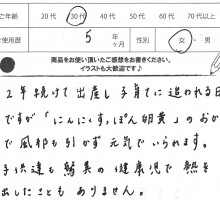 ご年齢 20代 30代 40代 50代 60代
使用歴 5 年 ヶ月 性別 女・男
商品をお使い頂いたご感想をお書きください。
イラストも大歓迎です♪
2年続けて出産し子育てに追われる日
ですが「にんにくすっぽん卵黄」のおか
で風邪も引かず元気でいられます。
子供達も驚異の健康児で熱を
出したこともありません。